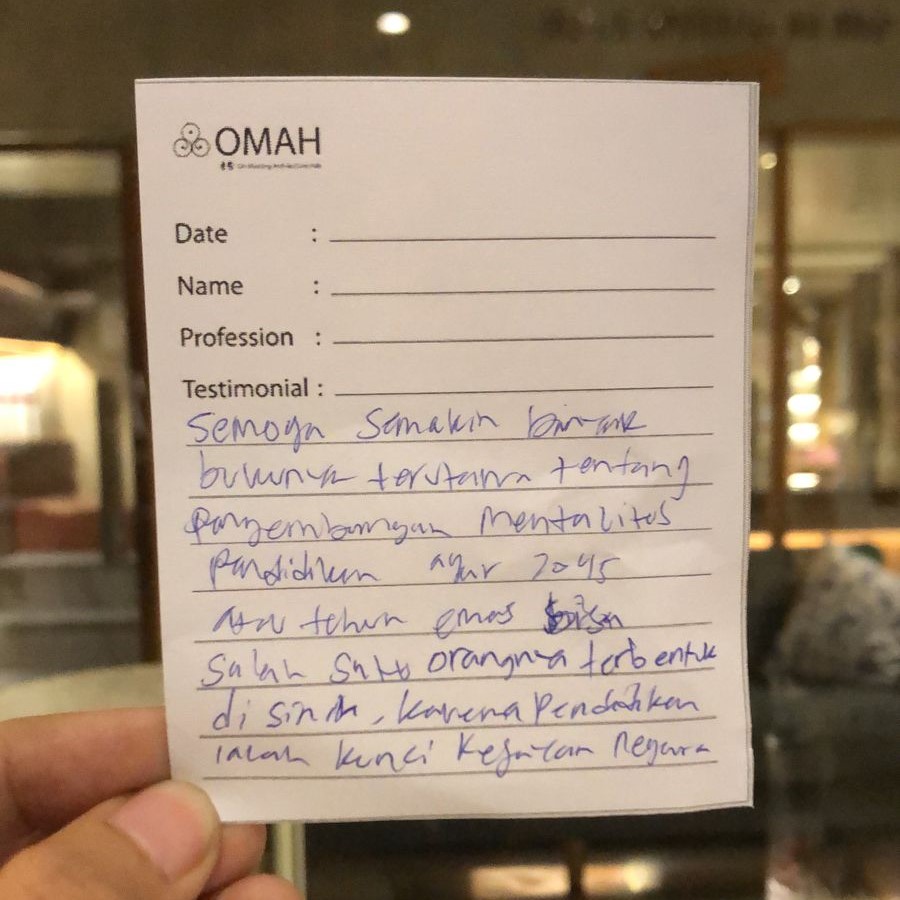 OMAH
Date :
Name :
Profession :
Testimonial :
Semoga Semakin banyak
bukunya terutama tentang
Pengembangan Mentalitas
Pendidikan agar 2045
Atau tahun emas bisa
Salah satu orangnya terbentuk
di sini, karena Pendidikan
ialah kunci Kejayaan Negara